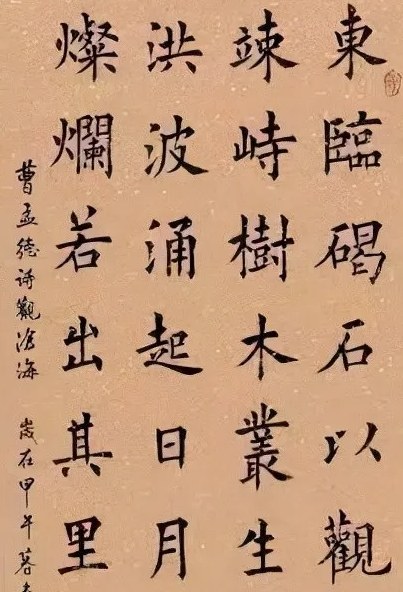 東臨碣石以觀
竦峙樹木叢生
洪波涌起日月
燦爛若出其里
曹孟德詩觀滄海 歲在甲午暮春